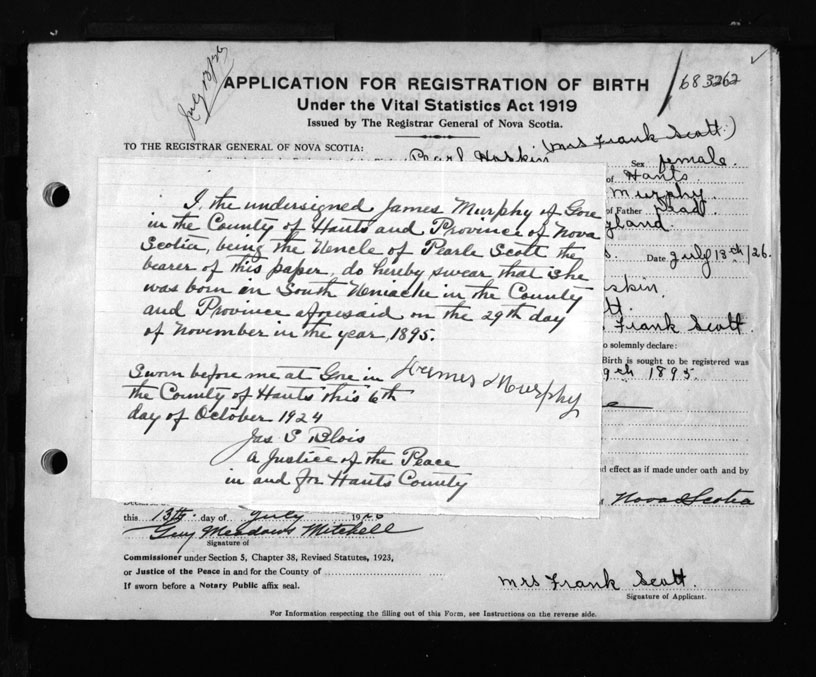 July 13/26
APPLICATION FOR REGISTRATION OF BIRTH
683262
Under the Vital Statistics Act 1919
Issued by The Registrar General of Nova Scotia.
(Mrs Frank Scott)
TO THE REGISTRAR GENERAL OF NOVA SCOTIA:
Pearl Hoskin
Sex female.
of Hants
Murphy
of Father
gland.
Date July 13th/26.
skin.
tt.
Frank Scott.
o solemnly declare:
Birth is sought to be registered was
9th 1895.
I, the undersigned James Murphy of Gore
in the County of Hants and Province of Nova
Scotia, being the Uncle of Pearle Scott the
bearer of this paper, do hereby swear that she
was born on South Uniacke in the County
and Province aforesaid on the 29th day
of November in the year, 1895.
Sworn before me at Gore in James Murphy
the County of Hants this 6th
day of October 1924
Jas S Blois
A Justice of the Peace
in and for Hants County
d effect as if made under oath and by
Nova Scotia
this 13th day of July 1926
Guy Meadows Mitchell
Signature of
Commissioner under Section 5, Chapter 38, Revised Statutes, 1923,
or Justice of the Peace in and for the County of
If sworn before a Notary Public affix seal.
Mrs Frank Scott.
Signature of Applicant.
For Information respecting the filling out of this Form, see Instructions on the reverse side.